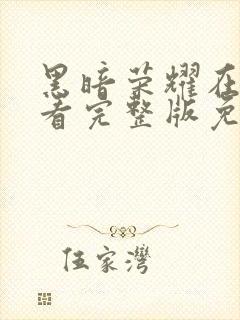 黑暗荣耀在
看完整版免
伍家灣